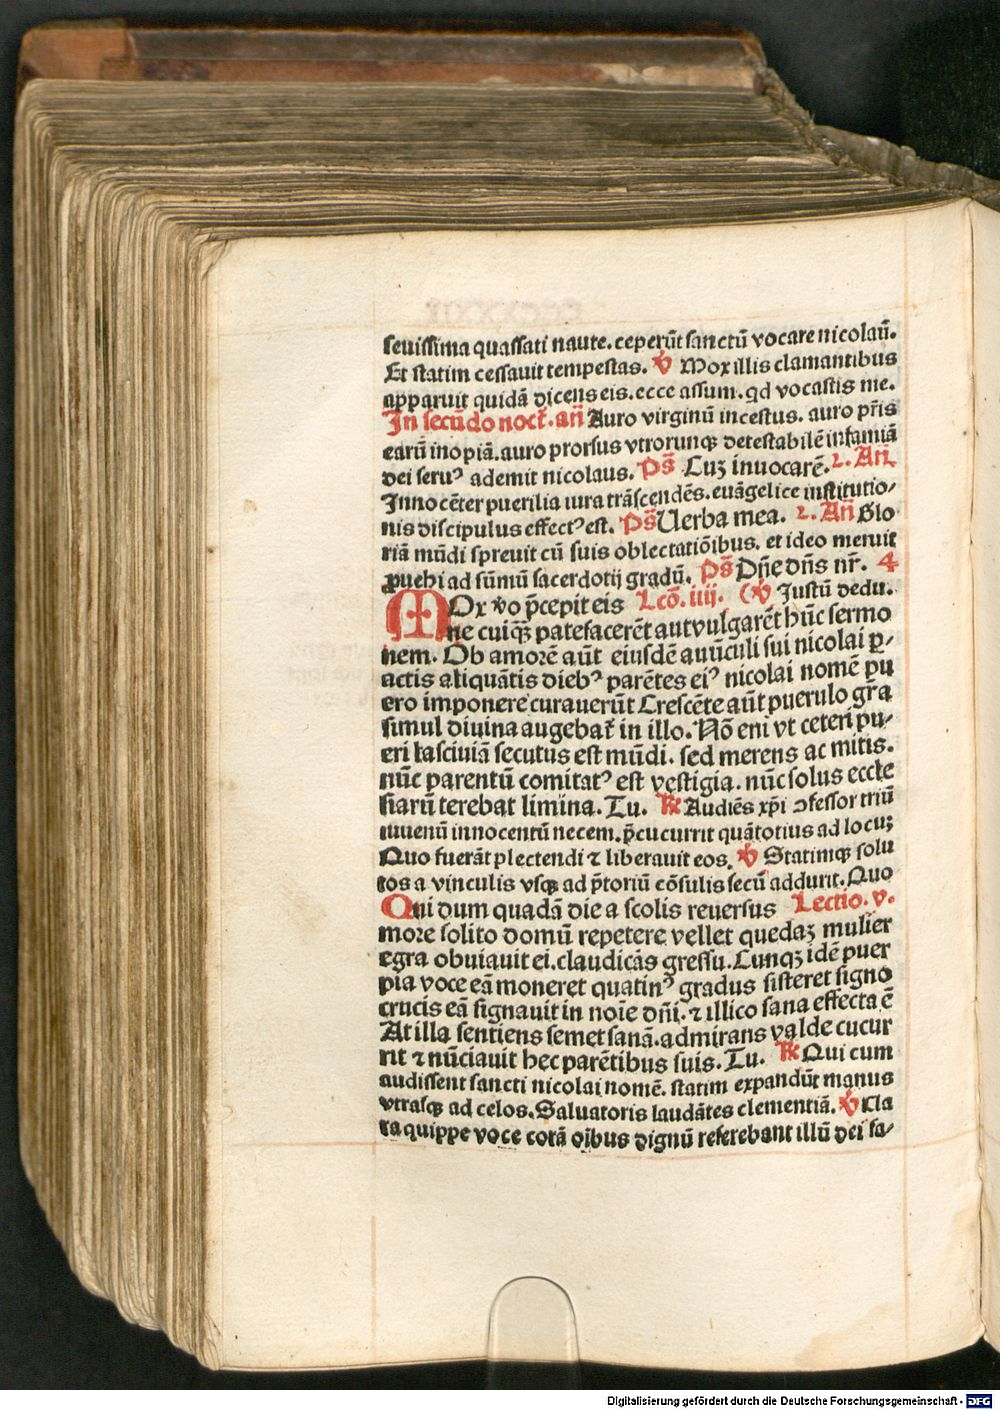 seuissima quassati naute. ceperūt sanctū vocare nicolaū.
Et statim cessauit tempestas. ꝟ Mox illis clamantibus
apparuit quidā dicens eis. ecce assum. qd vocastis me.
In secūdo noct̄. an̄ Auro virginū incestus. auro p̄ris
earū inopiā. auro prorsus vtrorunqꝫ detestabilē infamiā
dei seruꝰ ademit nicolaus. Ps̄ Cuꝫ inuocarē. 2. An̄
Innocēter puerilia iura trāscendēs. euāgelice institutio-
nis discipulus effectꝰ est. Ps̄ Uerba mea. 2. An̄ Glo
riā mūdi spreuit cū suis oblectatiōibus. et ideo meruit
ꝓuehi ad sūmū sacerdotij gradū. Ps̄ Dn̄e dn̄s nr̄. 4
MOx v̄o p̄cepit eis Lcō. iiij. (ꝟ Iustū dedu.
ne cuiqꝫ̄ patefacerēt aut vulgarēt hūc sermo
nem. Ob amorē aūt eiusdē auūculi sui nicolai ꝑ-
actis aliquātis diebꝰ parētes eiꝰ nicolai nomē pu
ero imponere curauerūt Crescēte aūt puerulo gr̄a
simul diuina augebat̄ in illo. Nō eni vt ceteri pu-
eri lasciuiā secutus est mūdi. sed merens ac mitis.
nūc parentū comitatꝰ est vestigia. nūc solus eccle
siarū terebat limina. Tu. ℟ Audiēs xp̄i ꝯfessor triū
iuuenū innocentū necem. p̄cucurrit quātotius ad locuꝫ
Quo fuerāt plectendi ⁊ liberauit eos. ꝟ Statimqꝫ solu
tos a vinculis vsqꝫ ad p̄toriū cōsulis secū addurit. Quo
Qui dum quadā die a scolis reuersus Lectio. v.
more solito domū repetere vellet quedaꝫ mulier
egra obuiauit ei. claudicās gressu. Cunqꝫ idē puer
pia voce eā moneret quatinꝰ gradus sisteret signo
crucis eā signauit in noīe dn̄i. ⁊ illico sana effecta ē
At illa sentiens semet sanā. admirans valde cucur
rit ⁊ nūciauit hec parētibus suis. Tu. ℟ Qui cum
audissent sancti nicolai nomē. statim expandūt manus
vtrasqꝫ ad celos. Saluatoris laudātes clementiā. ꝟ Cla
ra quippe voce corā oībus dignū referebant illū dei fa-
Digitalisierung gefördert durch die Deutsche Forschungsgemeinschaft - DFG